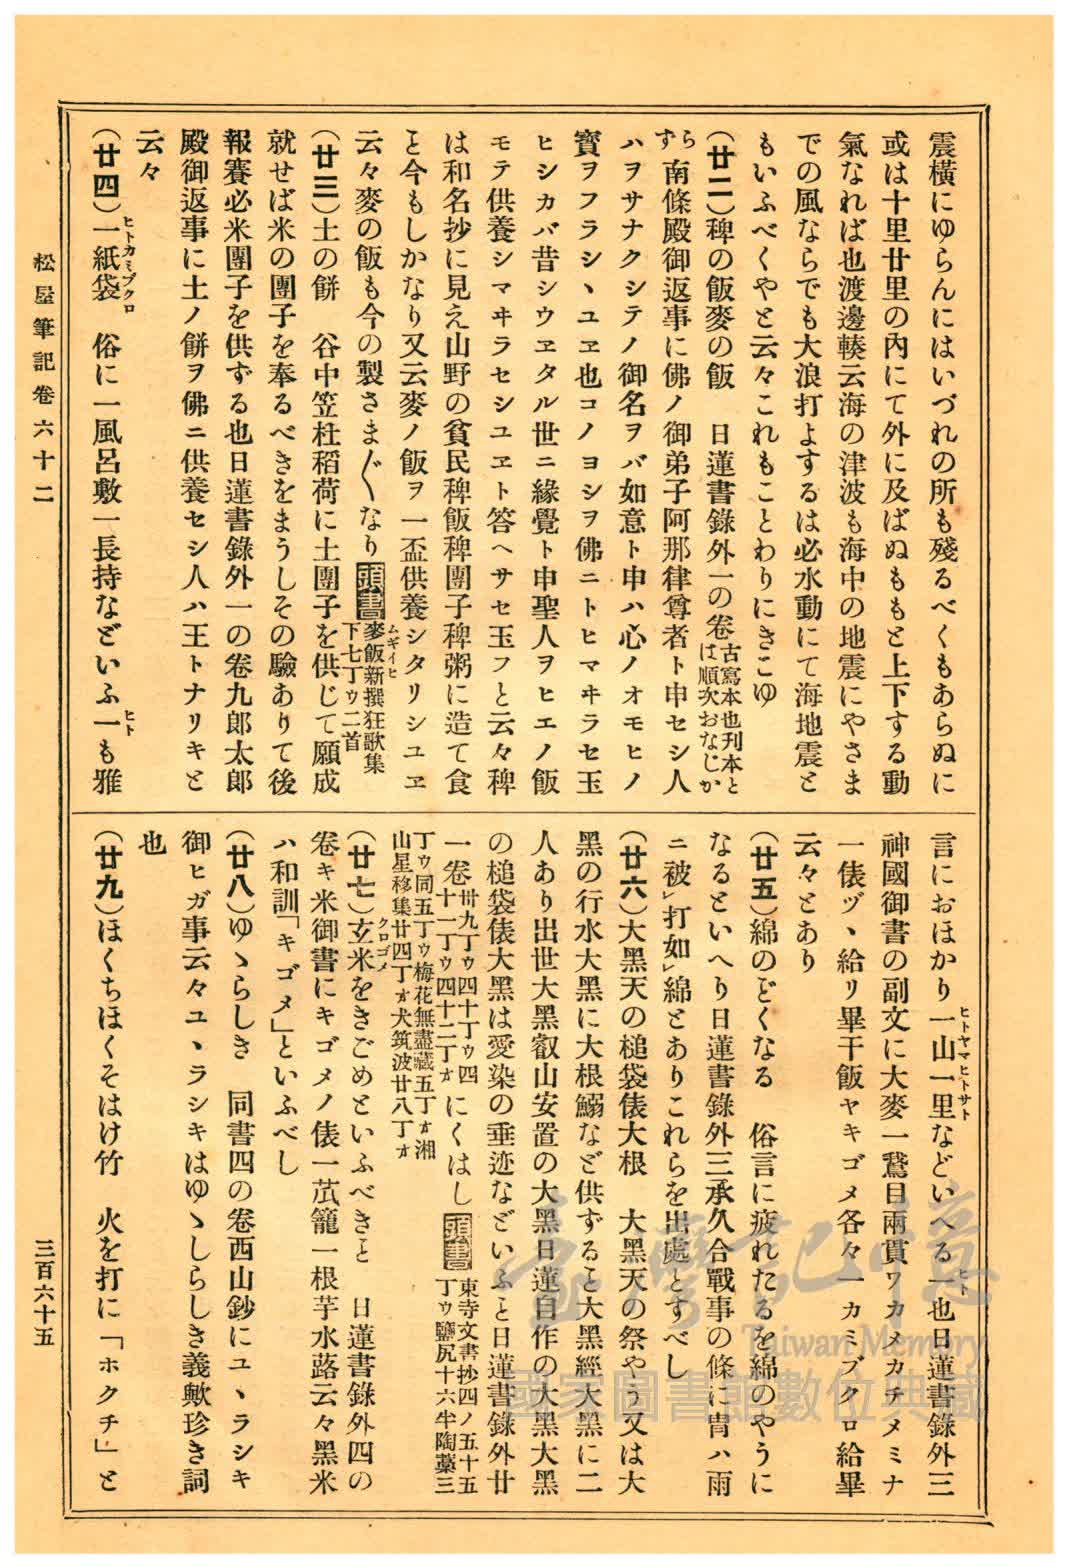 震橫にゆらんにはいづれの所も殘るべくもあらぬに
或は十里廿里の內にて外に及ばぬももと上下する動
氣なれば也渡邊輳云海の津波も海中の地震にやさま
での風ならでも大浪打よするは必水動にて海地震と
もいふべくやと云々これもことわりにきこゆ
(廿二)稗の飯麥の飯　日蓮書錄外一の卷古寫本也刊本とは順次おなじか
らず南條殿御返事に佛ノ御弟子阿那律尊者ト申セシ人
ハヲサナクシテノ御名ヲバ如意ト申ハ心ノオモヒノ
寶ヲフラシヽユヱ也コノヨシヲ佛ニトヒマヰラセ玉
ヒシカバ昔シウヱタル世ニ緣覺ト申聖人ヲヒエノ飯
モテ供養シマヰラセシユヱト答ヘサセ玉フと云々稗
は和名抄に見え山野の貧民稗飯稗團子稗粥に造て食
と今もしかなり又云麥ノ飯ヲ一盃供養シタリシユヱ
云々麥の飯も今の製さま〲なり頭書麥飯新撰狂歌集下七丁ゥ二首
ムギイヒ
(廿三)土の餅　谷中笠杜稻荷に土團子を供じて願成
就せば米の團子を奉るべきをまうしその驗ありて後
報賽必米團子を供ずる也日蓮書錄外一の卷九郞太郞
殿御返事に土ノ餅ヲ佛ニ供養セシ人ハ王トナリキと
云々
(廿四)一紙袋　俗に一風呂敷一長持などいふ一も雅
ヒトカミブクロ
ヒト
言におほかり一山一里などいへる一也日蓮書錄外三
ヒトヤマヒトサト
ヒト
神國御書の副文に大麥一䭾目兩貫ワカメカチメミナ
一俵ヅヽ給リ畢干飯ヤキゴメ各々一カミブクロ給畢
云々とあり
(廿五)綿のどくなる　俗言に疲れたるを綿のやうに
なるといへり日蓮書錄外三承久合戰事の條に冑ハ雨
ニ被㆑打如㆑綿とありこれらを出處とすべし
(廿六)大黑天の槌袋俵大根　大黑天の祭やう又は大
黑の行水大黑に大根鰯など供ずると大黑經大黑に二
人あり出世大黑叡山安置の大黑日蓮自作の大黑大黑
の槌袋俵大黑は愛染の垂迹などいふと日蓮書錄外廿
一卷卅九丁ゥ四十丁ゥ四十一丁ゥ四十二丁ォにくはし頭書東寺文書抄四ノ五十五丁ゥ鹽尻十六半陶藁三
丁ゥ同五丁ゥ梅花無盡藏五丁ォ湘
山星移集廿四丁ォ犬筑波廿八丁ォ
(廿七)玄米をきごめといふべきと　日蓮書錄外四の
クロゴメ
卷キ米御書にキゴメノ俵一苽籠一根芋水蕗云々黑米
ハ和訓「キゴメ」といふべし
(廿八)ゆゝらしき　同書四の卷西山鈔にユヽラシキ
御ヒガ事云々ユヽラシキはゆゝしらしき義歟珍き詞
也
(廿九)ほくちほくそはけ竹　火を打に「ホクチ」と
松屋筆記卷六十二
三百六十五
臺灣記憶
Taiwan Memory
國家圖書館數位典藏